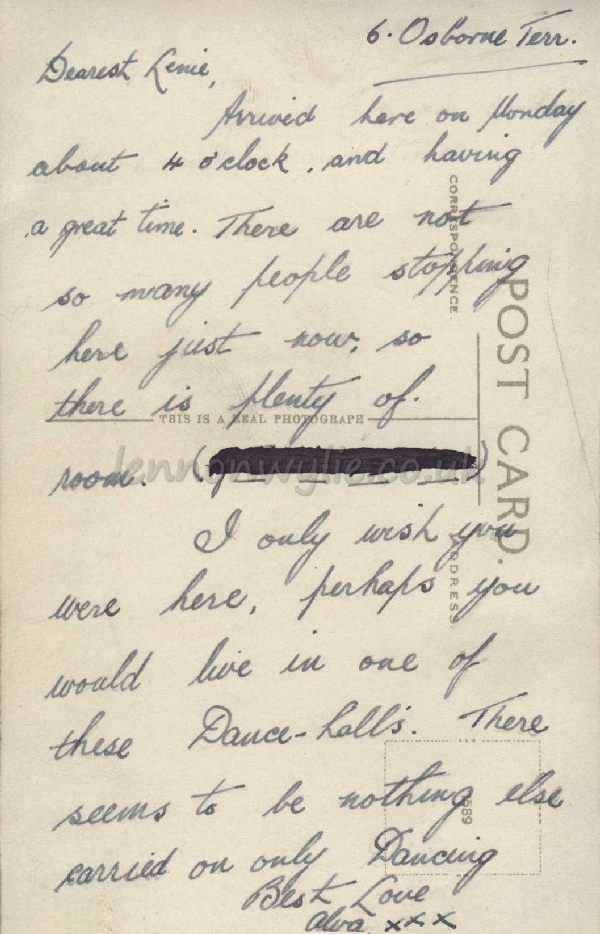 6. Osborne Terr.
Dearest Lenie,
Arrived here on Monday
about 4 o'clock, and having
a great time. There are not
so many people stopping
here just now, so
there is plenty of.
room. (
I only wish you
were here, perhaps you
would live in one of
these Dance-hall's. There
seems to be nothing else
carried on only Dancing
Best Love
Alva xxx
THIS IS A REAL PHOTOGRAPH
CORRESPONDENCE.
POST CARD.
ADDRESS
589
lennonwylie.co.uk